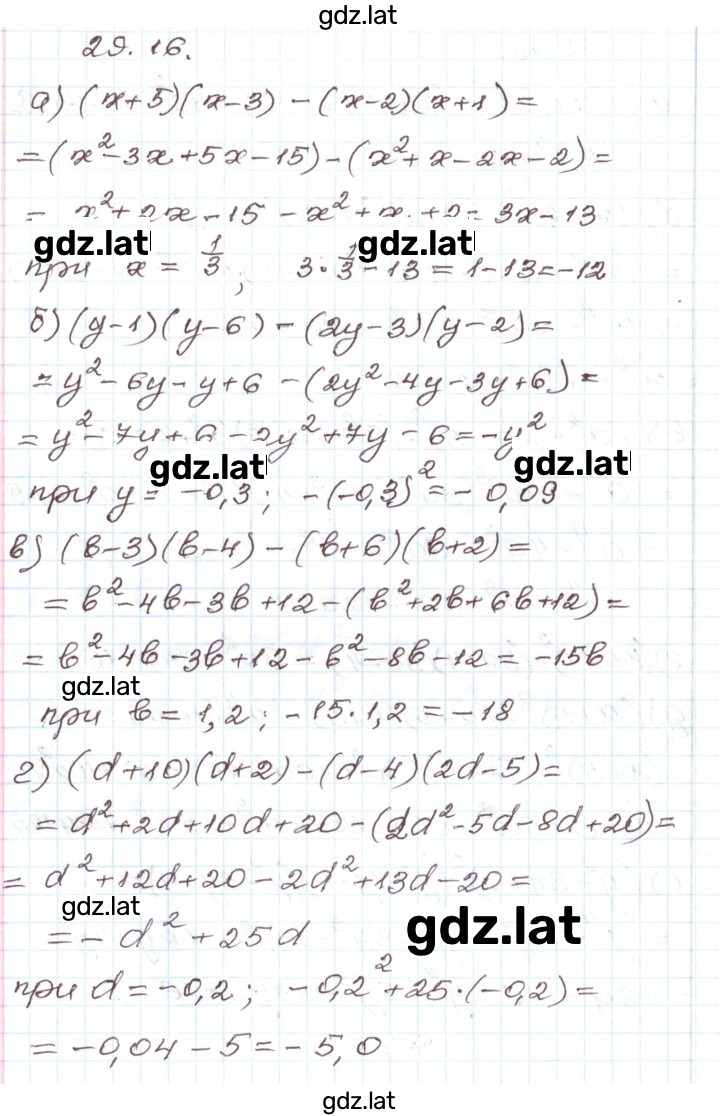 gdz.lat
29.16.
а) (x+5)(x-3) - (x-2)(x+1) =
= (x²-3x+5x-15) - (x²+x-2x-2) =
= x²+2x-15 - x²+x+2 = 3x-13
gdz.lat gdz.lat
при x = 1/3, 3·1/3-13 = 1-13 = -12
б) (y-1)(y-6) - (2y-3)(y-2) =
= y²-6y-y+6 - (2y²-4y-3y+6) =
= y²-7y+6-2y²+7y-6 = -y²
gdz.lat gdz.lat
при y = -0,3; -(-0,3)² = -0,09
в) (в-3)(в-4) - (в+6)(в+2) =
= в²-4в-3в+12 - (в²+2в+6в+12) =
= в²-4в-3в+12-в²-8в-12 = -15в
gdz.lat
при в = 1,2; -15·1,2 = -18
г) (d+10)(d+2) - (d-4)(2d-5) =
= d²+2d+10d+20 - (2d²-5d-8d+20) =
= d²+12d+20-2d²+13d-20 =
gdz.lat
= -d²+25d
gdz.lat
при d = -0,2; -0,2²+25·(-0,2) =
= -0,04-5 = -5,0
gdz.lat